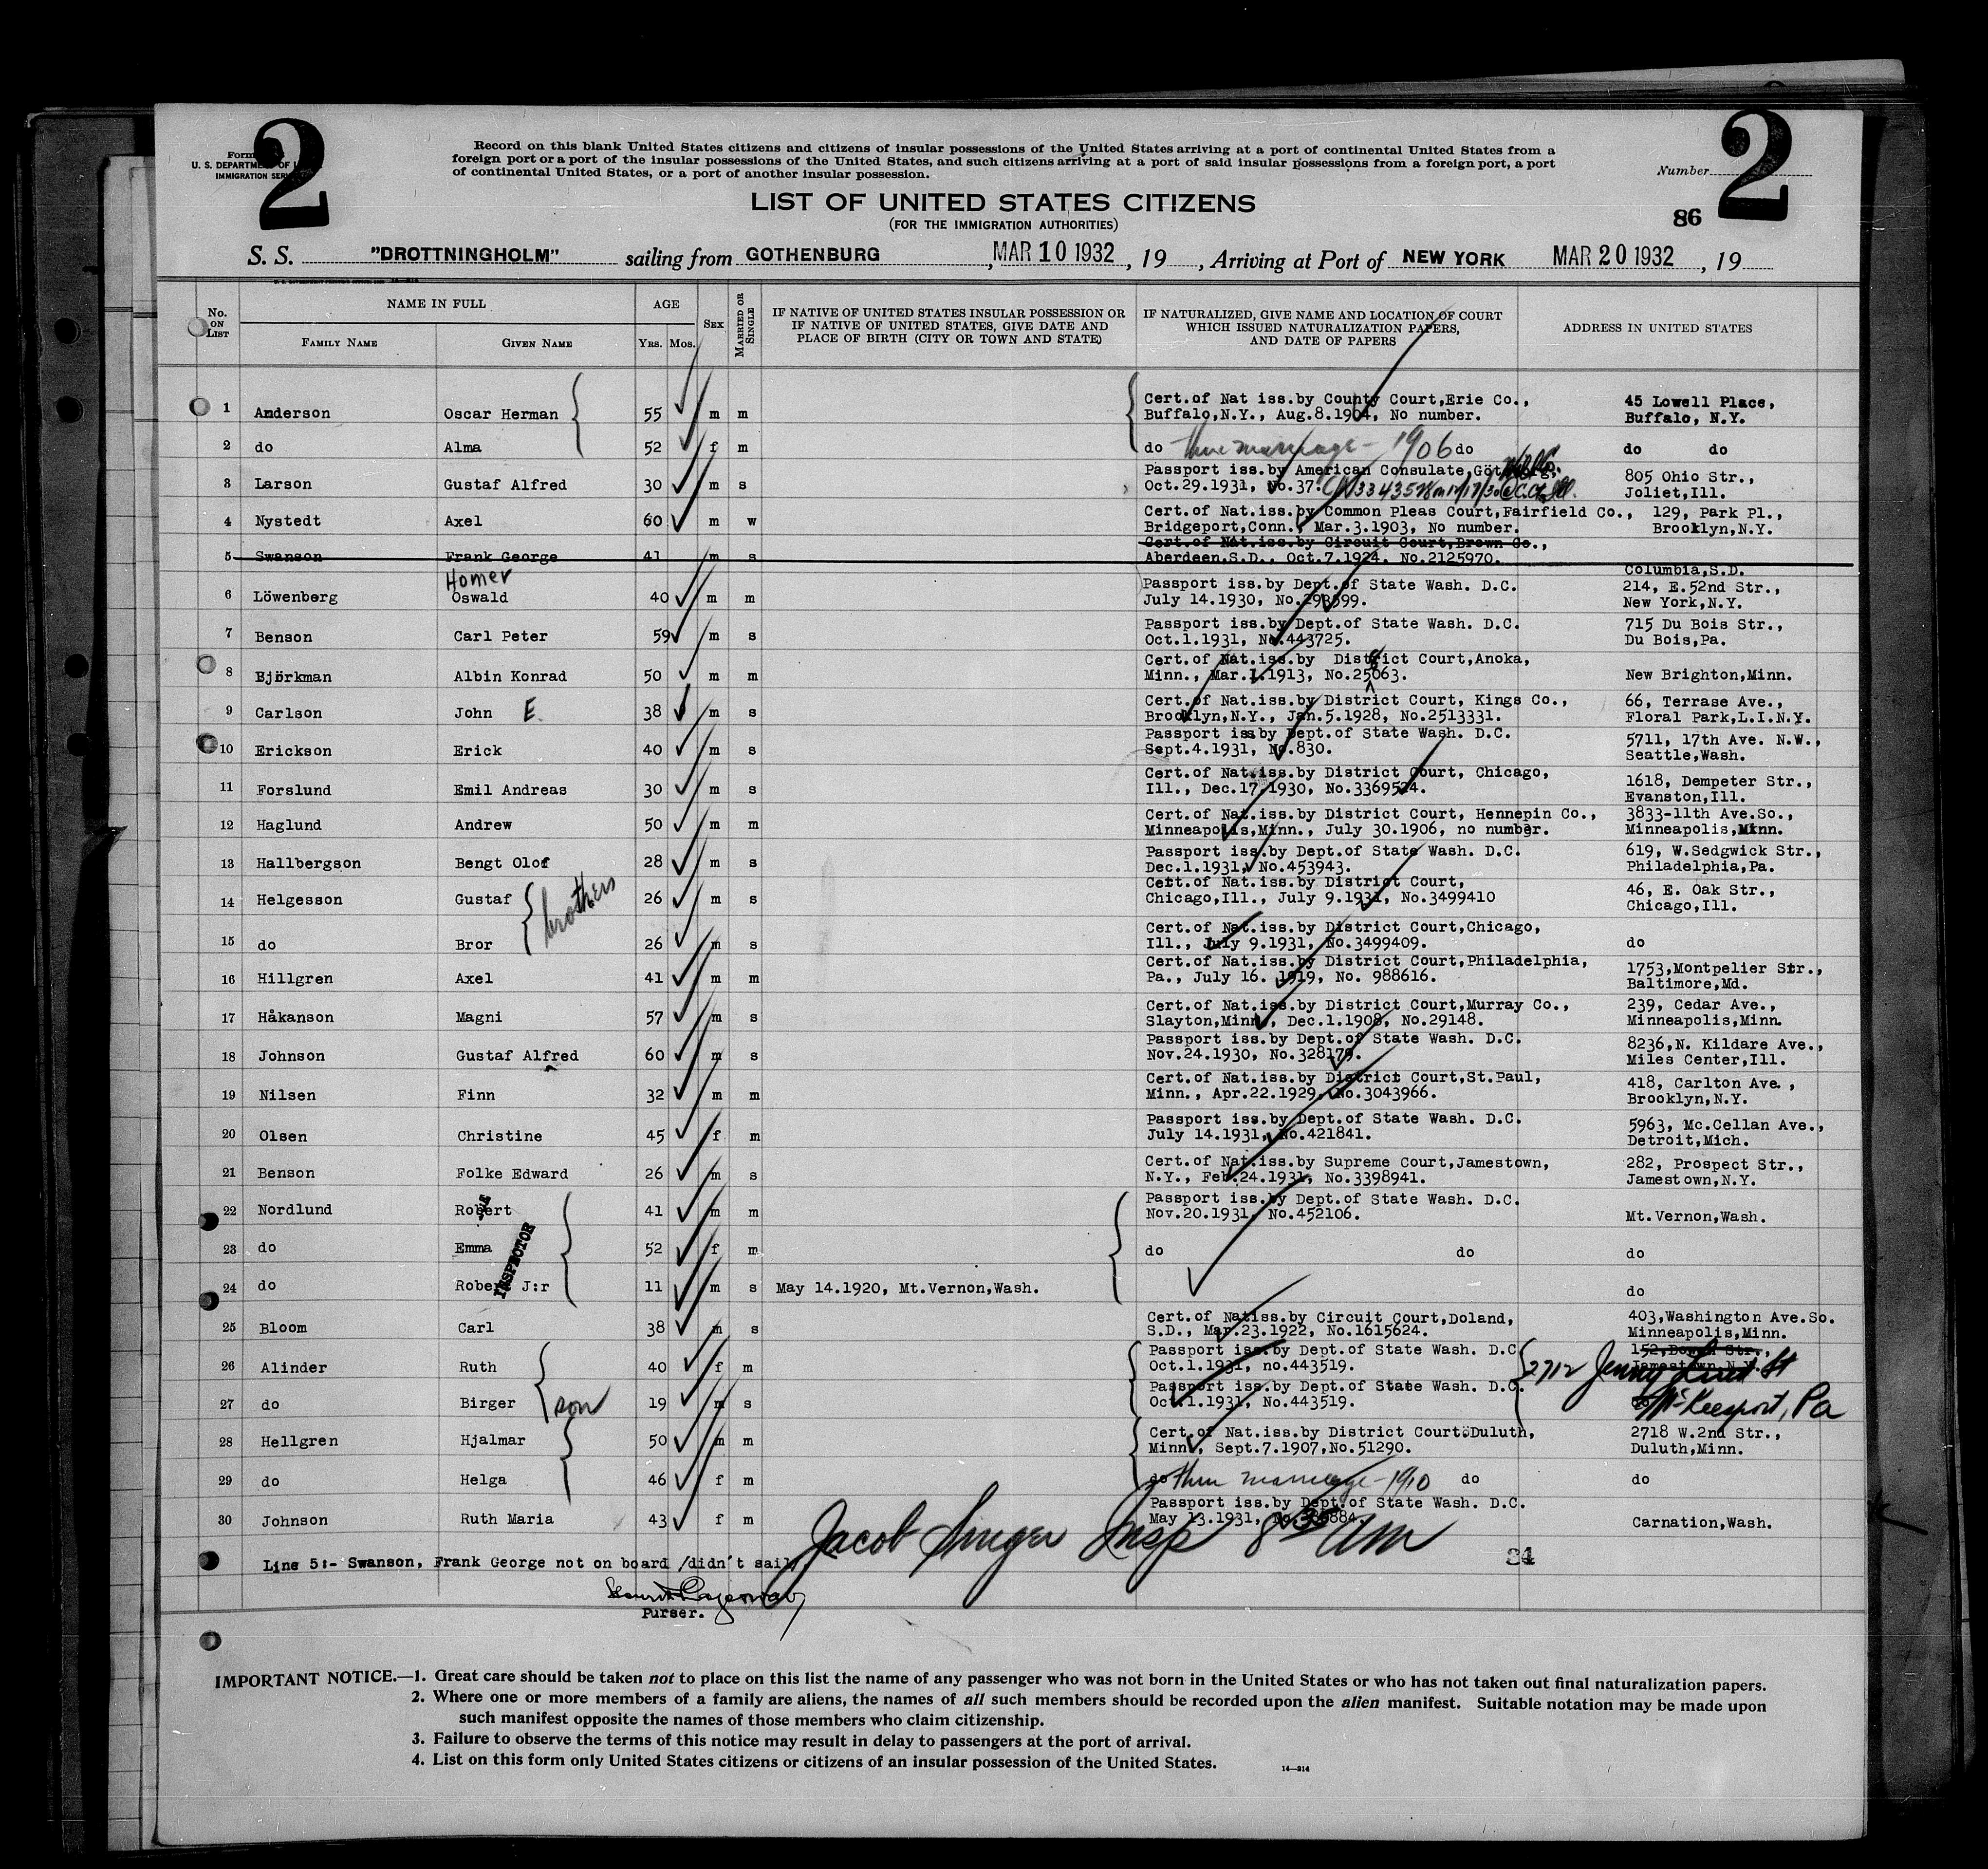 2
2
Form
U. S. DEPARTMENT OF L
IMMIGRATION SERV
Record on this blank United States citizens and citizens of insular possessions of the United States arriving at a port of continental United States from a
foreign port or a port of the insular possessions of the United States, and such citizens arriving at a port of said insular possessions from a foreign port, a port
of continental United States, or a port of another insular possession.
Number
LIST OF UNITED STATES CITIZENS
(FOR THE IMMIGRATION AUTHORITIES)
86
S. S. "DROTTNINGHOLM" sailing from GOTHENBURG, MAR 10 1932, 19 , Arriving at Port of NEW YORK MAR 20 1932, 19
No. ON LIST
NAME IN FULL
FAMILY NAME
GIVEN NAME
AGE
YRS. MOS.
SEX
MARRIED OR SINGLE
IF NATIVE OF UNITED STATES INSULAR POSSESSION OR
IF NATIVE OF UNITED STATES, GIVE DATE AND
PLACE OF BIRTH (CITY OR TOWN AND STATE)
IF NATURALIZED, GIVE NAME AND LOCATION OF COURT
WHICH ISSUED NATURALIZATION PAPERS,
AND DATE OF PAPERS
ADDRESS IN UNITED STATES
1 Anderson Oscar Herman 55 m m Cert.of Nat iss.by County Court,Erie Co., 45 Lowell Place,
Buffalo,N.Y., Aug.8.1904, No number. Buffalo, N.Y.
2 do Alma 52 f m do thru marriage - 1906 do do do
3 Larson Gustaf Alfred 30 m s Passport iss.by American Consulate, 805 Ohio Str.,
Oct.29.1931, No.37. Joliet,Ill.
4 Nystedt Axel 60 m w Cert.of Nat.iss.by Common Pleas Court,Fairfield Co., 129, Park Pl.,
Bridgeport,Conn., Mar.3.1903, No number. Brooklyn,N.Y.
5 Swanson Frank George 41 m s Cert.of Nat.iss.by Circuit Court,Brown Co.,
Aberdeen.S.D., Oct.7.1924, No.2125970. Columbia,S.D.
Homer
6 Löwenberg Oswald 40 m m Passport iss.by Dept.of State Wash. D.C. 214, E.52nd Str.,
July 14.1930, No.298599. New York,N.Y.
7 Benson Carl Peter 59 m s Passport iss.by Dept.of State Wash. D.C. 715 Du Bois Str.,
Oct.1.1931, No.443725. Du Bois,Pa.
8 Björkman Albin Konrad 50 m m Cert.of Nat.iss.by District Court,Anoka,
Minn., Mar.1.1913, No.25063. New Brighton,Minn.
9 Carlson John E. 38 m s Cert.of Nat.iss.by District Court, Kings Co., 66, Terrase Ave.,
Brooklyn,N.Y., Jan.5.1928, No.2513331. Floral Park,L.I.N.Y.
10 Erickson Erick 40 m s Passport iss by Dept.of State Wash. D.C. 5711, 17th Ave. N.W.,
Sept.4.1931, No.830. Seattle,Wash.
11 Forslund Emil Andreas 30 m s Cert.of Nat.iss.by District Court, Chicago, 1618, Dempeter Str.,
Ill., Dec.17.1930, No.3369524. Evanston,Ill.
12 Haglund Andrew 50 m m Cert.of Nat.iss.by District Court, Hennepin Co., 3833-11th Ave.So.,
Minneapolis,Minn., July 30.1906, no number. Minneapolis,Minn.
13 Hallbergson Bengt Olof 28 m s Passport iss.by Dept.of State Wash. D.C. 619, W.Sedgwick Str.,
Dec.1.1931, No.453943. Philadelphia,Pa.
14 Helgesson Gustaf brothers 26 m s Cert.of Nat.iss.by District Court, 46, E. Oak Str.,
Chicago,Ill., July 9.1931, No.3499410 Chicago,Ill.
15 do Bror 26 m s Cert.of Nat.iss.by District Court,Chicago,
Ill., July 9.1931, No.3499409. do
16 Hillgren Axel 41 m m Cert.of Nat.iss.by District Court,Philadelphia, 1753,Montpelier Str.,
Pa., July 16. 1919, No. 988616. Baltimore,Md.
17 Håkanson Magni 57 m s Cert.of Nat.iss.by District Court,Murray Co., 239, Cedar Ave.,
Slayton,Minn., Dec.1.1908, No.29148. Minneapolis,Minn.
18 Johnson Gustaf Alfred 60 m s Passport iss.by Dept.of State Wash. D.C. 8236,N. Kildare Ave.,
Nov.24.1930, No.328179. Miles Center,Ill.
19 Nilsen Finn 32 m m Cert.of Nat.iss.by District Court,St.Paul, 418, Carlton Ave.,
Minn., Apr.22.1929, No.3043966. Brooklyn,N.Y.
20 Olsen Christine 45 f m Passport iss.by Dept.of State Wash. D.C. 5963, Mc.Cellan Ave.,
July 14.1931, No.421841. Detroit,Mich.
21 Benson Folke Edward 26 m s Cert.of Nat.iss.by Supreme Court,Jamestown, 282, Prospect Str.,
N.Y., Feb.24.1931, No.3398941. Jamestown,N.Y.
22 Nordlund Robert 41 m m Passport iss.by Dept.of State Wash. D.C.
Nov.20.1931, No.452106. Mt.Vernon,Wash.
INSPECTOR
23 do Emma 52 f m do do do
24 do Robert J:r 11 m s May 14.1920, Mt.Vernon,Wash. do
25 Bloom Carl 38 m s Cert.of Nat iss.by Circuit Court,Doland, 403,Washington Ave.So.
S.D., Mar.23.1922, No.1615624. Minneapolis,Minn.
26 Alinder Ruth 40 f m Passport iss.by Dept.of State Wash. D.C. 152, Str.,
Oct.1.1931, no.443519. Jamestown,N.Y.
2712 Jenny Lind St
27 do Birger son 19 m s Passport iss.by Dept.of State Wash. D.C. do
Oct.1.1931, No.443519. McKeesport, Pa
28 Hellgren Hjalmar 50 m m Cert.of Nat.iss.by District Court Duluth, 2718 W.2nd Str.,
Minn., Sept.7.1907,No.51290. Duluth,Minn.
29 do Helga 46 f m do thru marriage - 1910 do do
30 Johnson Ruth Maria 43 f m Passport iss.by Dept.of State Wash. D.C.
May 13.1931, Carnation,Wash.
Jacob Singer Insp 8 35 AM
Line 5:- Swanson, Frank George not on board /didn't sail/
Purser.
IMPORTANT NOTICE.—1. Great care should be taken not to place on this list the name of any passenger who was not born in the United States or who has not taken out final naturalization papers.
2. Where one or more members of a family are aliens, the names of all such members should be recorded upon the alien manifest. Suitable notation may be made upon
such manifest opposite the names of those members who claim citizenship.
3. Failure to observe the terms of this notice may result in delay to passengers at the port of arrival.
4. List on this form only United States citizens or citizens of an insular possession of the United States.
14—314